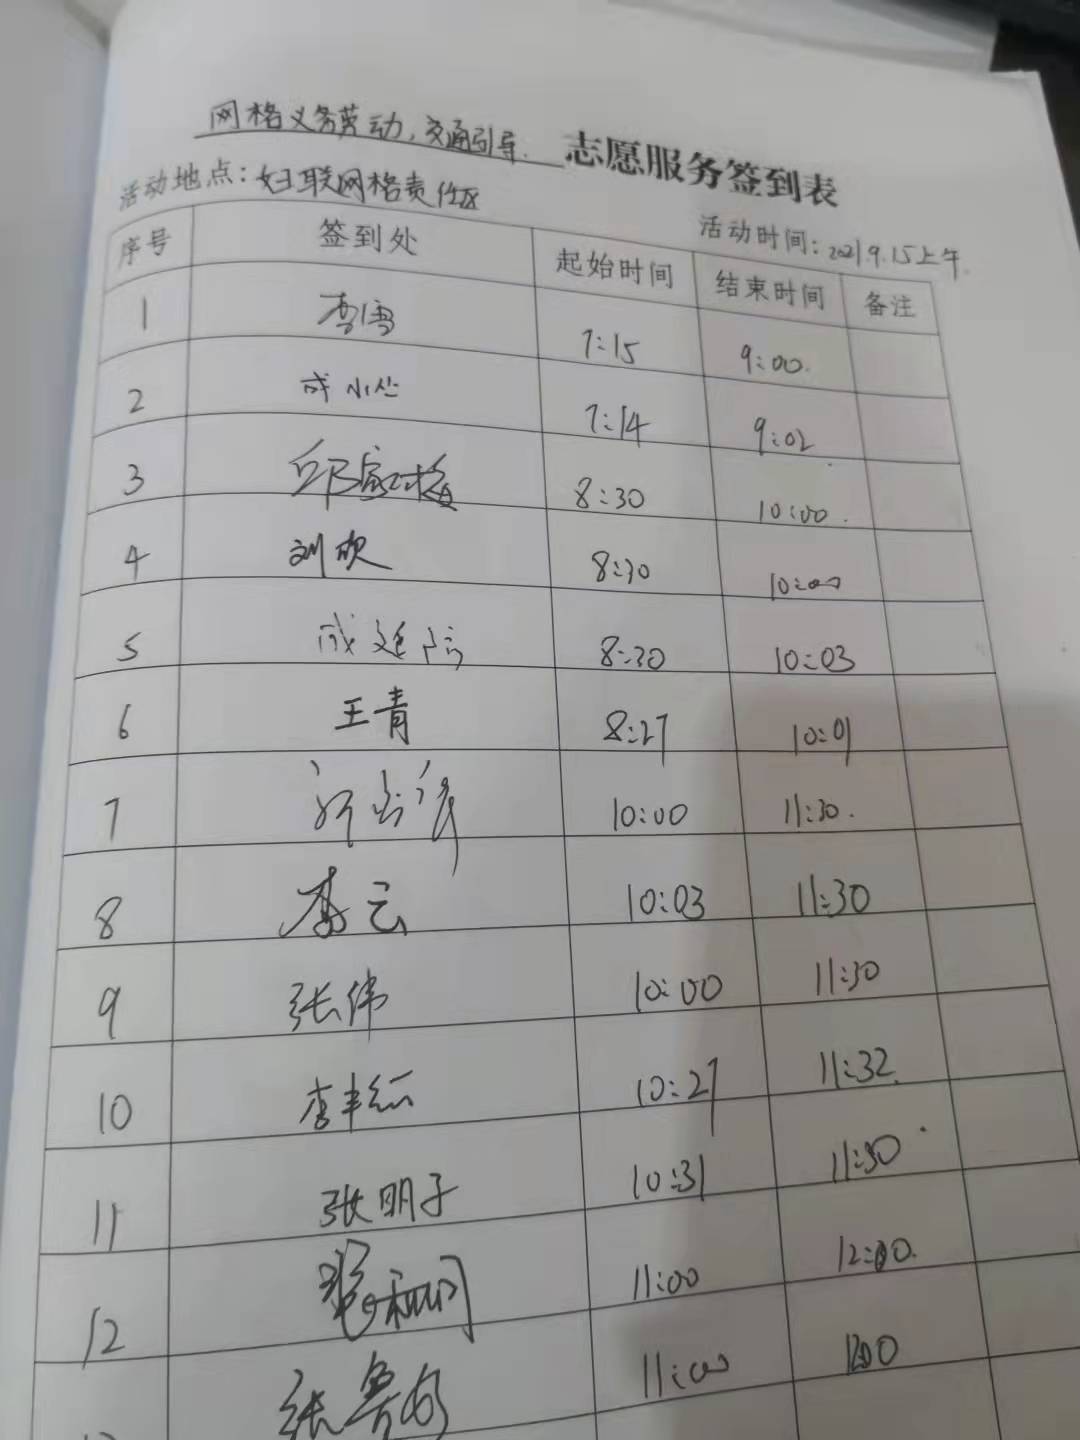 网格义务劳动,交通引导. 志愿服务签到表
活动地点:妇联网格责任区
活动时间:2021.9.15上午.
序号 签到处 起始时间 结束时间 备注
1 李雪 7:15 9:00.
2 成小丛 7:14 9:02
3 邱家梅 8:30 10:00.
4 刘欢 8:30 10:00
5 成廷 8:30 10:03
6 王青 8:27 10:01
7 10:00 11:30.
8 李云 10:03 11:30
9 张伟 10:00 11:30
10 李丰 10:27 11:32
11 张明子 10:31 11:30
12 11:00 12:00.
张鲁 11:00